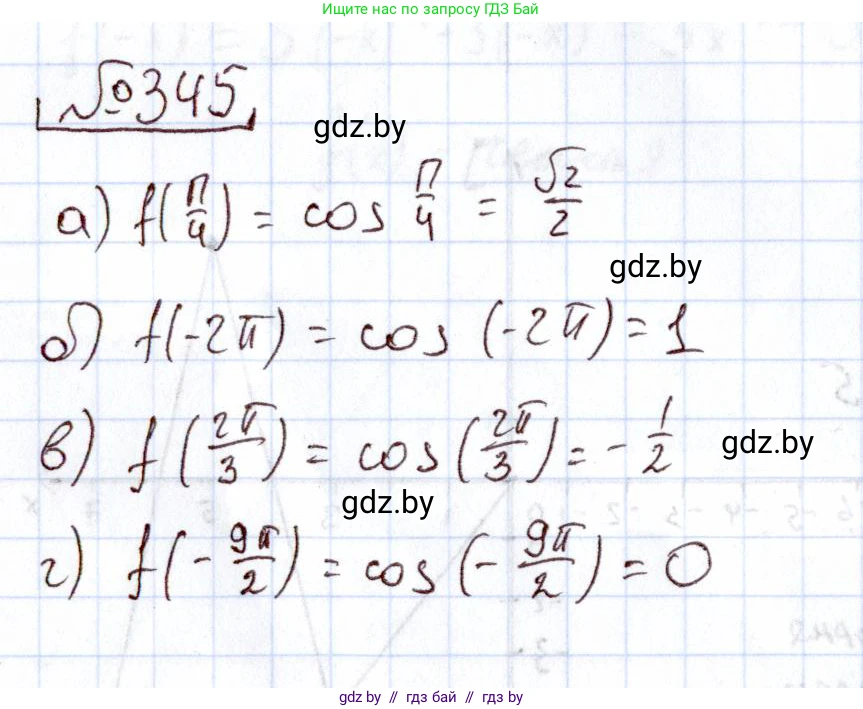 Ищите нас по запросу ГДЗ Бай
№345
gdz.by
а) f(π/4) = cos π/4 = √2/2
gdz.by
б) f(-2π) = cos (-2π) = 1
в) f(2π/3) = cos(2π/3) = -1/2
gdz.by
gdz.by
г) f(-9π/2) = cos(-9π/2) = 0
gdz.by // гдз бай // гдз by